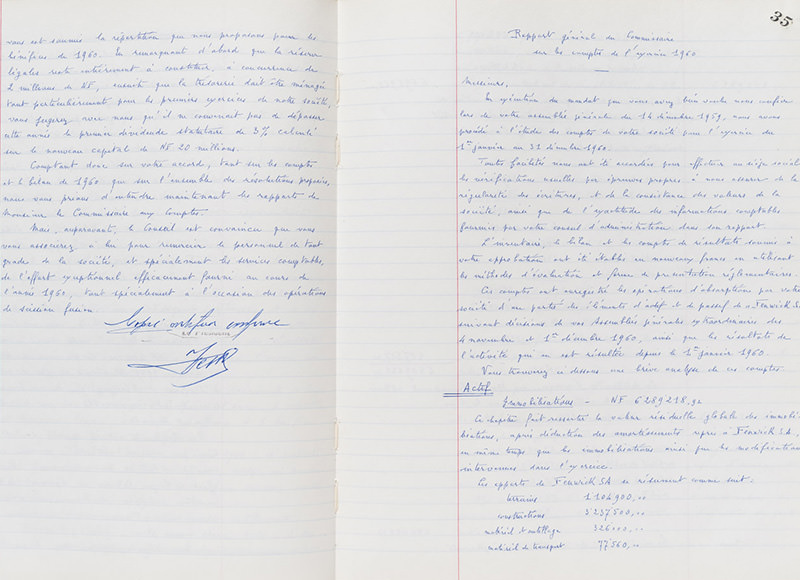 vous est soumise la répartition que nous proposons pour les
bénéfices de 1960. En remarquant d'abord que la réserve
légale reste entièrement à constituer, à concurrence de
2 millions de NF, ensuite que la trésorerie doit être ménagée
tout particulièrement pour les premiers exercices de notre société,
vous jugerez avec nous qu'il ne convenait pas de dépasser
cette année le premier dividende statutaire de 5% calculé
sur le nouveau capital de NF 20 millions.
Comptant donc sur votre accord, tant sur les comptes
et le bilan de 1960 que sur l'ensemble des résolutions proposées,
nous vous prions d'entendre maintenant les rapports de
Monsieur le Commissaire aux Comptes.
Mais, auparavant, le Conseil est convaincu que vous
vous associerez à lui pour remercier le personnel de tout
grade de la société, et spécialement les services comptables,
de l'effort exceptionnel efficacement fourni au cours de
l'année 1960, tout spécialement à l'occasion des opérations
de scission fusion.
Copie certifiée conforme
35
Rapport général du Commissaire
sur les comptes de l'exercice 1960
Messieurs,
En exécution du mandat que vous avez bien voulu nous confier
lors de votre assemblée générale du 14 décembre 1959, nous avons
procédé à l'étude des comptes de votre société pour l'exercice du
1er janvier au 31 décembre 1960.
Toutes facilités nous ont été accordées pour effectuer au siège social
les vérifications usuelles par épreuves propres à nous assurer de la
régularité des écritures, et de la consistance des valeurs de la
société, ainsi que de l'exactitude des informations comptables
fournies par votre conseil d'administration dans son rapport.
L'inventaire, le bilan et les comptes de résultats soumis à
votre approbation ont été établis en nouveaux francs en utilisant
les méthodes d'évaluation et formes de présentation réglementaires.
Ces comptes ont enregistré les opérations d'absorption par votre
société d'une partie des éléments d'actif et de passif de Fenwick SA
suivant décisions de vos Assemblées générales extraordinaires des
4 novembre et 1er décembre 1960, ainsi que les résultats de
l'activité qui en est résultée depuis le 1er janvier 1960.
Vous trouverez ci dessous une brève analyse de ces comptes.
Actif
Immobilisations - NF 6 289 218,92
Ce chapitre fait ressortir la valeur résiduelle globale des immobi-
lisations, après déduction des amortissements repris à Fenwick S.A.
en même temps que les immobilisations ainsi que les modifications
intervenues dans l'exercice.
Les apports de Fenwick SA se résument comme suit:
terrains 1 104 900,"
constructions 3 237 500,"
matériel et outillage 326 000,"
matériel de transport 77 560,"